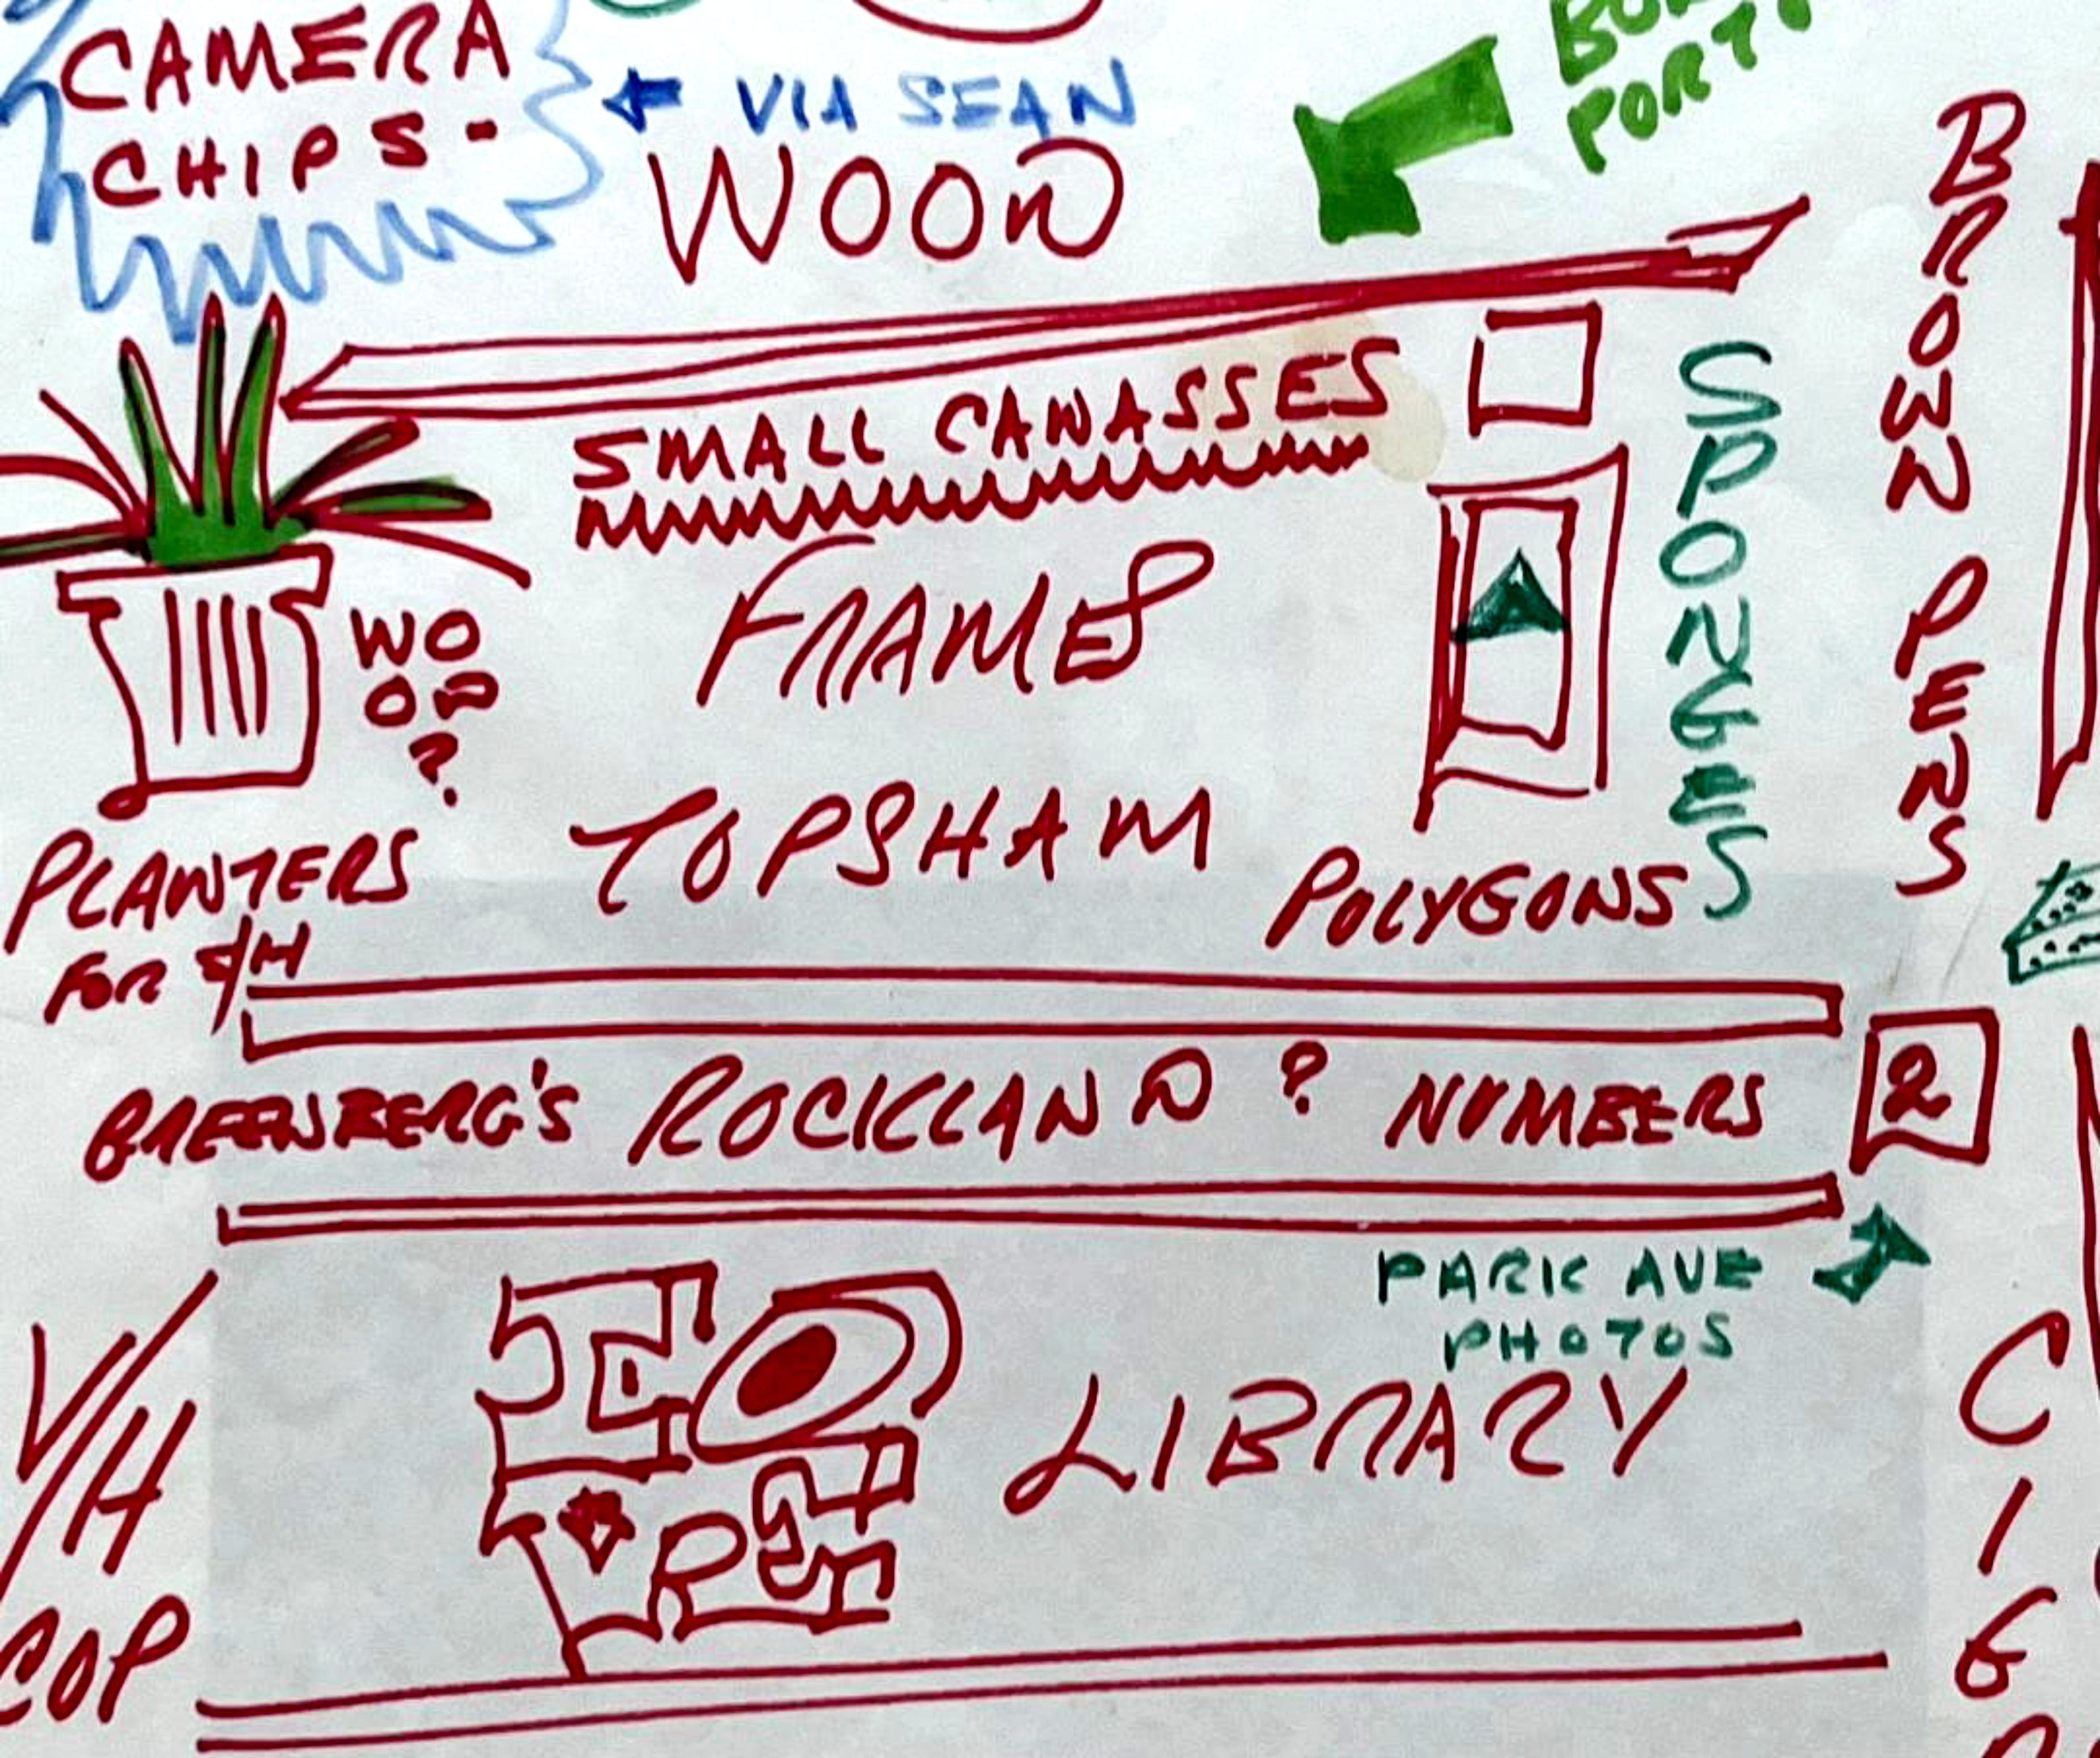 CAMERA
CHIPS-
VIA SEAN
WOOD
SMALL CANVASSES
FRAMES
WO
OD
?
TOPSHAM
PLANTERS
FOR
POLYGONS
SPONGES
BROWN PENS
GREENBERG'S ROCKLAND ? NUMBERS
2
PARK AVE
PHOTOS
LIBRARY
V/H
COP
PORT
CIG